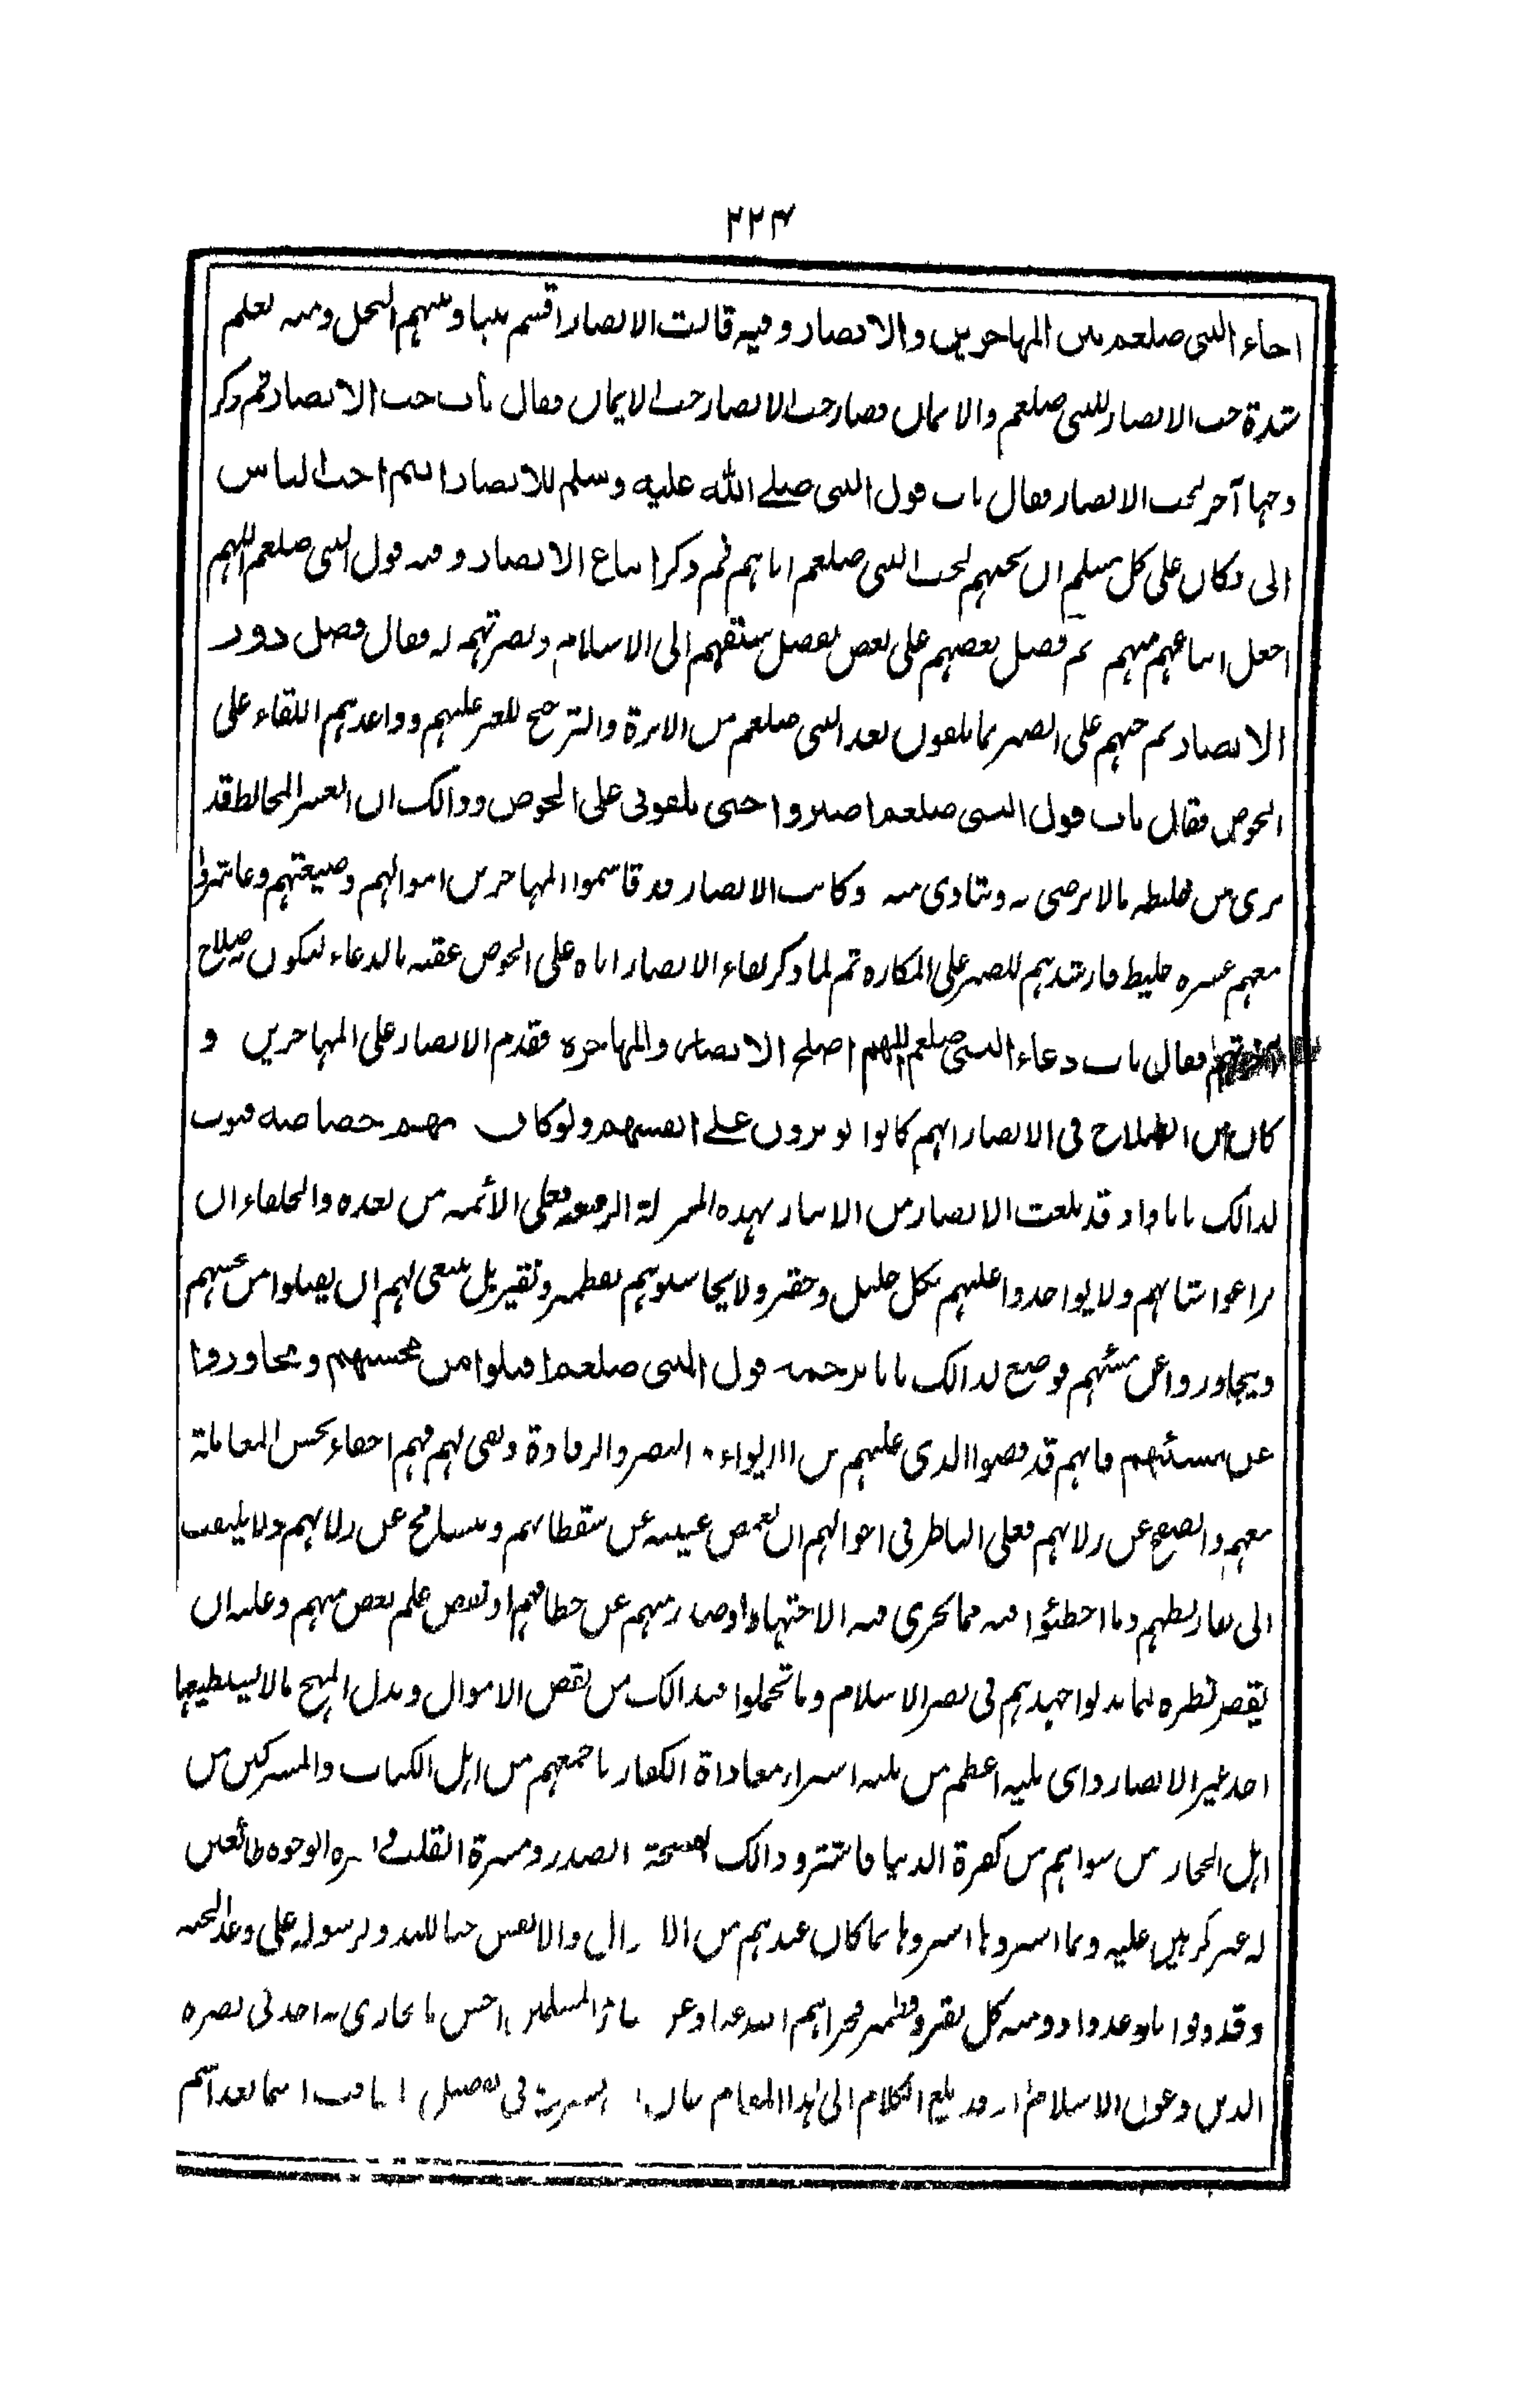 ٢٢٣
اخاء النبى صلعم بين المهاجرين والانصار وفيه قالت الانصار اقسم بيننا وبينهم النخل ومنه تعلم
شدة حب الانصار للنبى صلعم والايمان فصار حب الانصار حب الايمان فقال باب حب الانصار ثم ذكر
وجها آخر لحب الانصار فقال باب قول النبى صلى الله عليه وسلم للانصار انتم احب الناس
الى فكان على كل مسلم ان يحبهم لحب النبى صلعم اياهم ثم ذكر اتباع الانصار وفيه قول النبى صلعم اللهم
اجعل اتباعهم منهم ثم فضل بعضهم على بعض بفضل سبقهم الى الاسلام ونصرتهم له فقال فضل دور
الانصار ثم حثهم على الصبر بما يلقون بعد النبى صلعم من الاثرة والترجيح للغير عليهم وواعدهم اللقاء على
الحوض فقال باب قول النبى صلعم اصبروا حتى تلقونى على الحوض وذالك ان العشير المخالط قد
يرى من خليطه ما لا يرضى به ويتاذى منه وكانت الانصار قد قاسموا المهاجرين اموالهم وضيعتهم وعاشرو
معهم عشرة خليط فارشدهم للصبر على المكاره ثم لما ذكر لقاء الانصار اياه على الحوض عقبه بالدعاء ليكون صلاح
فقال باب دعاء النبى صلعم اللهم اصلح الانصار والمهاجرة فقدم الانصار على المهاجرين و
كان من الصلاح فى الانصار انهم كانوا يوثرون على انفسهم ولو كان بهم خصاصة فبوب
لذالك بابا واذ قد بلغت الانصار من الايثار بهذه المنزلة الرفيعة فعلى الأئمة من بعده والخلفاء ان
يراعوا شانهم ولا يواخذوا عليهم بكل جليل وحقير ولا يحاسبوهم بقطمير ونقير بل ينبغى لهم ان يقبلوا من محسنهم
ويتجاوزوا عن مسيئهم فوضع لذالك بابا ترجمته قول النبى صلعم اقبلوا من محسنهم وتجاوزوا
عن مسيئهم فانهم قد قضوا الذى عليهم من الايواء والنصر والرفادة وبقى لهم فهم احقاء بحسن المعاملة
معهم والصفح عن زلاتهم فعلى الناظر فى احوالهم ان يغمض عينيه عن سقطاتهم ويسامح عن زلاتهم ولا يلتفت
الى وما اخطئوا فيه مما يجرى فيه الاجتهاد او صدر منهم عن خطائهم او نقص علم بعض منهم وعليه ان
يقصر نظره لما بذلوا جهدهم فى نصر الاسلام وما تحملوا فى ذالك من نقص الاموال وبذل المهج ما لا يستطيعها
احد غير الانصار واى بلية اعظم من بلية اشتراء معاداة الكفار باجمعهم من اهل الكتاب والمشركين من
اهل الحجاز من سواهم من كفرة الدنيا فاشتروا ذالك بفسحة الصدر ومسرة القلب الوجوه طائعين
له غير كرهين عليه وما اشتروها اشتروها بما كان عندهم من والانفس حبا لله ولرسوله على وعد الجنة
وقد وفوا بما وعدوا منه كل نقير وقطمير فجزاهم الله عنا وعن سائر المسلمين احسن ما يجازى به احد فى نصرة
الدين وعون الاسلام قد بلغ الكلام الى هذا المقام فى تفصيل بعد اسم